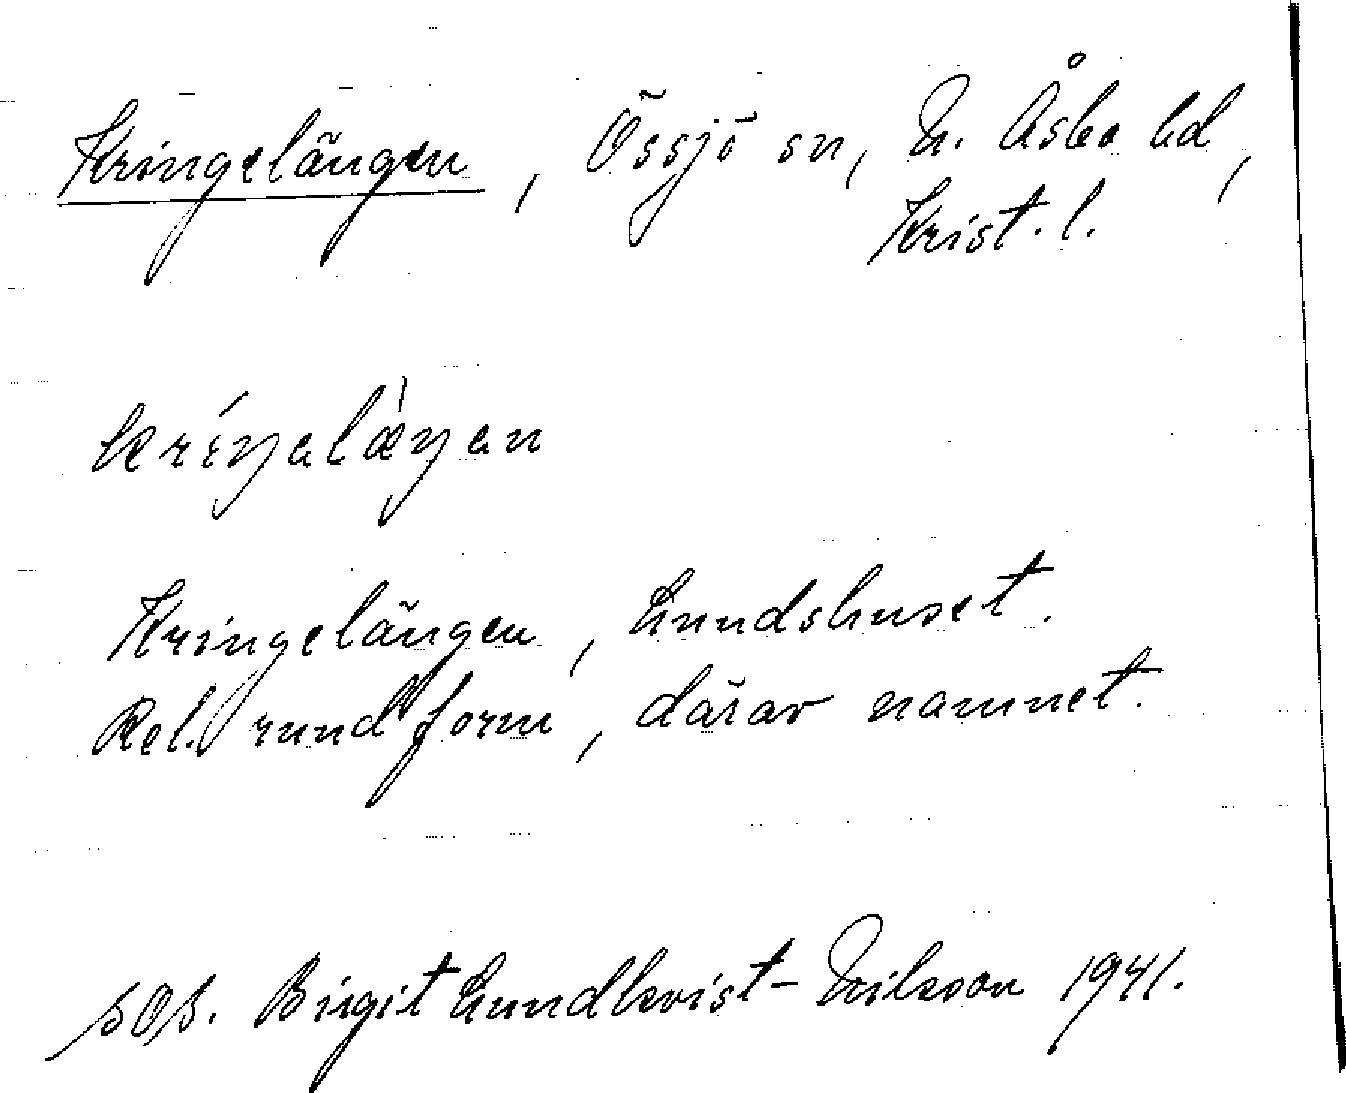 Kringelängen, Össjö sn, N. Åsbo hd,
Krist. l.
kríŋəlæ̀ŋən
Kringelängen, Lundshuset.
Rel. rund form, därav namnet.
sOs. Birgit Lundkvist-Nilsson 1941.